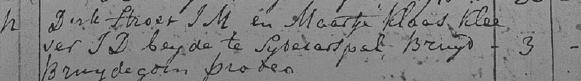 h Dirk Stroet J M en Maartje Klaas Klee
ver J D beyde te Sybecarspel Bruyd - 3 -
Bruydegom pro deo